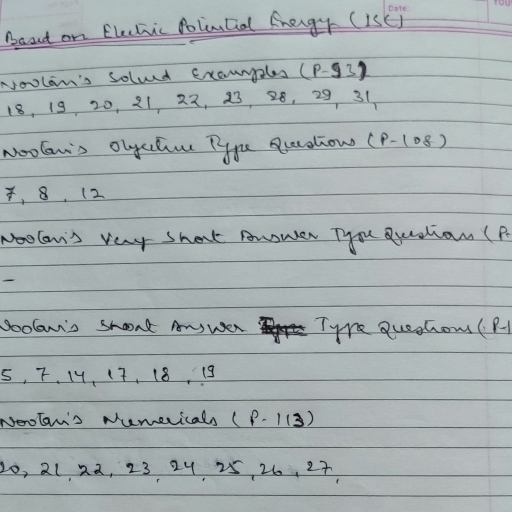 Date
Based on Electric Potential Energy (ISC)
Nootan's Solved Examples (P-93)
18, 19, 20, 21, 22, 23, 28, 29, 31,
Nootan's Objective Type Questions (P-108)
7, 8, 12
Nootan's Very Short Answer Type Questions (P-
-
Nootan's Short Answer Type Questions (P-1
5, 7, 14, 17, 18, 19
Nootan's Numericals (P-113)
20, 21, 22, 23, 24, 25, 26, 27,